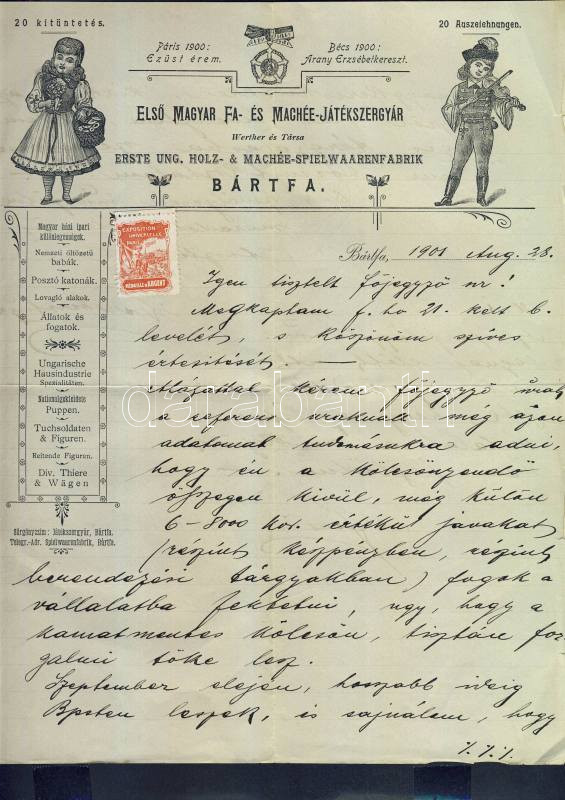 20 kitüntetés.
20 Auszeichnungen.
Páris 1900:
Ezüst érem.
Bécs 1900:
Arany Erzsébetkereszt.
ELSŐ MAGYAR FA- ÉS MACHÉE-JÁTÉKSZERGYÁR
Werther és Társa
ERSTE UNG. HOLZ- & MACHÉE-SPIELWAARENFABRIK
BÁRTFA.
Magyar házi ipari
különlegességek.
Nemzeti öltözetű
babák.
Posztó katonák.
Lovagló alakok.
Állatok és
fogatok.
Ungarische
Hausindustrie
Spezialitäten.
Nationalgekleidete
Puppen.
Tuchsoldaten
& Figuren.
Reitende Figuren.
Div. Thiere
& Wägen
Sürgönyzim: Játékszergyár, Bártfa.
Telegr.-Adr. Spielwaarenfabrik, Bártfa.
EXPOSITION
UNIVERSELLE
PARIS
MÉDAILLE D'ARGENT
Bártfa, 1901 Aug. 28.
Igen tisztelt főjegyző úr!
Megkaptam f. hó 21. kelt b.
levelét, s köszönöm szíves
értesítését. —
Alázattal kérem főjegyző úrat
a referens uraknak még azon
adatomat tudomásukra adni,
hogy én a kölcsönzendő
összegen kívül, még külön
6-8000 kor. értékűt javakat
(részint készpénzben, részint
berendezési tárgyakban) fogok a
vállalatba fektetni, úgy, hogy a
kamatmentes kölcsön, tisztán for-
galmi tőke lesz.
Szeptember elején, hosszabb ideig
Bpsten leszek, és sajnálom, hogy
./././.
darabanth